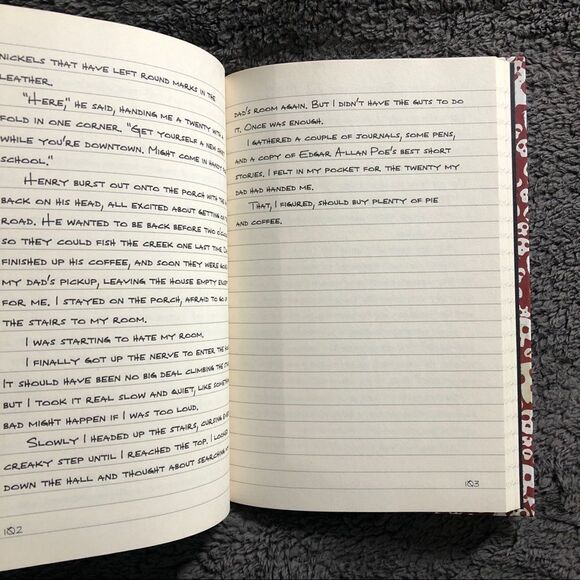 NICKELS THAT HAVE LEFT ROUND MARKS IN THE
LEATHER.
"HERE," HE SAID, HANDING ME A TWENTY WITH A
FOLD IN ONE CORNER. "GET YOURSELF A NEW
WHILE YOU'RE DOWNTOWN. MIGHT COME IN HANDY
SCHOOL."
HENRY BURST OUT ONTO THE PORCH WITH THE
BACK ON HIS HEAD, ALL EXCITED ABOUT GETTING ON
ROAD. HE WANTED TO BE BACK BEFORE TWO
SO THEY COULD FISH THE CREEK ONE LAST TIME.
FINISHED UP HIS COFFEE, AND SOON THEY WERE
MY DAD'S PICKUP, LEAVING THE HOUSE EMPTY
FOR ME. I STAYED ON THE PORCH, AFRAID TO GO
THE STAIRS TO MY ROOM.
I WAS STARTING TO HATE MY ROOM.
I FINALLY GOT UP THE NERVE TO ENTER THE
IT SHOULD HAVE BEEN NO BIG DEAL CLIMBING THE
BUT I TOOK IT REAL SLOW AND QUIET, LIKE
BAD MIGHT HAPPEN IF I WAS TOO LOUD.
SLOWLY I HEADED UP THE STAIRS, CURSING
CREAKY STEP UNTIL I REACHED THE TOP. I LOOKED
DOWN THE HALL AND THOUGHT ABOUT SEARCHING
102
DAD'S ROOM AGAIN. BUT I DIDN'T HAVE THE GUTS TO DO
IT. ONCE WAS ENOUGH.
I GATHERED A COUPLE OF JOURNALS, SOME PENS,
AND A COPY OF EDGAR ALLAN POE'S BEST SHORT
STORIES. I FELT IN MY POCKET FOR THE TWENTY MY
DAD HAD HANDED ME.
THAT, I FIGURED, SHOULD BUY PLENTY OF PIE
AND COFFEE.
103